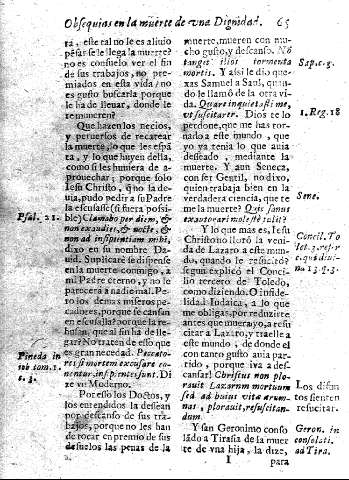 Obsequias en la muerte de vna Dignidad. 65
rà, este tal no le es aliuio
pésar se le llega la muerte?
no es consuelo ver el fin
de sus trabajos, no pre-
miados en esta vida? no
es gusto buscarla porque
le ha de lleuar, donde le
remuneren?
Que hazen los necios,
y peruersos de recatear
la muerte, lo que les espã
ta, y lo que huyen della,
como si les huuiera de a-
prouechar; porque solo
Iesu Christo, q̃ no la de-
uia, pudo pedir a su Padre
la escusasse (si fuera possi-
Psal. 21.
ble) Clamabo per diem, &
non exaudies, & nocte, &
non ad insipientiam mihi,
dixo en su nombre Da-
uid. Suplicarè se dispense
en la muerte conmigo, a
mi Padre eterno, y no le
parecerà a nadie mal. Pe-
ro los demas miseros pe-
cadores, porque se cansan
en escusalla? porque la re-
husan, que al fin ha de lle-
gar? No traten de esso que
es gran necedad. Peccato-
Pineda in
res si mortem excusare co-
Iob tom. 1.
nentur, insipientes sunt. Di
c. 3.
ze vn Moderno.
Por esso los Doctos, y
los entendidos la dessean
por descanso de sus tra-
bajos, porque no les han
de tocar en premio de sus
desuelos las penas de la
muerte, mueren con mu-
cho gusto, y descanso. Nõ
tanget illos tormentum
Sap. c. 3.
mortis. Y assi le dio que-
xas Samuel a Saul, quan-
do le llamò de la otra vi
da. Quare inquietasti me,
1. Reg. 18
vt suscitarer. Dios te lo
perdone, que me has tor-
nado a este mundo, que
yo ya tenia lo que auia
desseado, mediante la
muerte. Y aun Seneca,
con ser Gentil, no dixo,
quien trabaja bien en la
verdadera ciencia, que te
Sene.
me la muerte?
Y lo que mas es, Iesu
Concil. To
Christo no llorò la veni-
let. 3. refer
da de Lazaro a este mun-
do, quando le resucitò?
segun explicò el Conci-
lio tercero de Toledo,
como diziendo. O infide-
lidad Iudaica, a lo que
me obligas, por reduzirte
antes que muera yo, a resu
citar a Lazaro, y traelle a
este mundo, de donde el
con tanto gusto auia par-
tido, porque iva a des-
cansar! Christus non plo-
rauit Lazarum mortuum
Los difun
sed ad huius vitæ ærum-
tos sienten
nas, plorauit, resuscitan-
resucitar.
dum.
Y san Geronimo conso
Geron. in
lado a Tirasia de la muer
consolati.
te de vna hija, la dize,
ad Tira.
I para